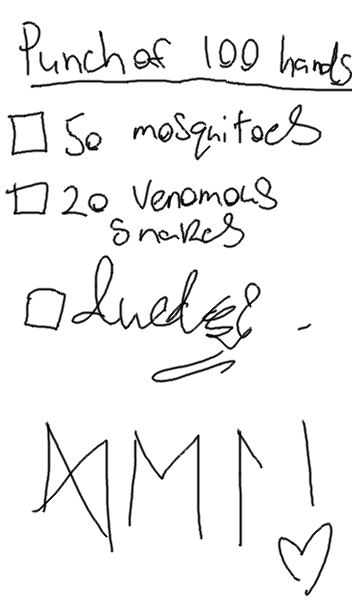 Punch of 100 hands
50 mosquitoes
20 venomous
snakes
ᛞᛖᛚᛁ